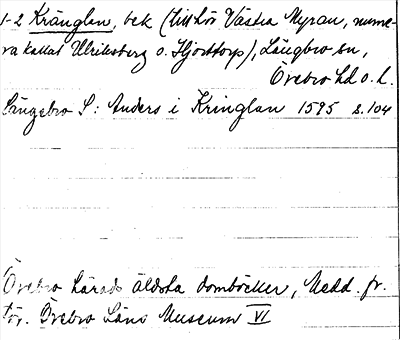 1-2 Kränglan, bek (tillhör Västra Myran, nume-
ra kallat Ulriksberg o. Hjortstorp), Längbro sn,
Örebro hd o. l.
Längebro S: Anders i Kringlan 1595 s. 104
Örebro härads äldsta domböcker, Medd. fr.
för. Örebro Läns Museum VI